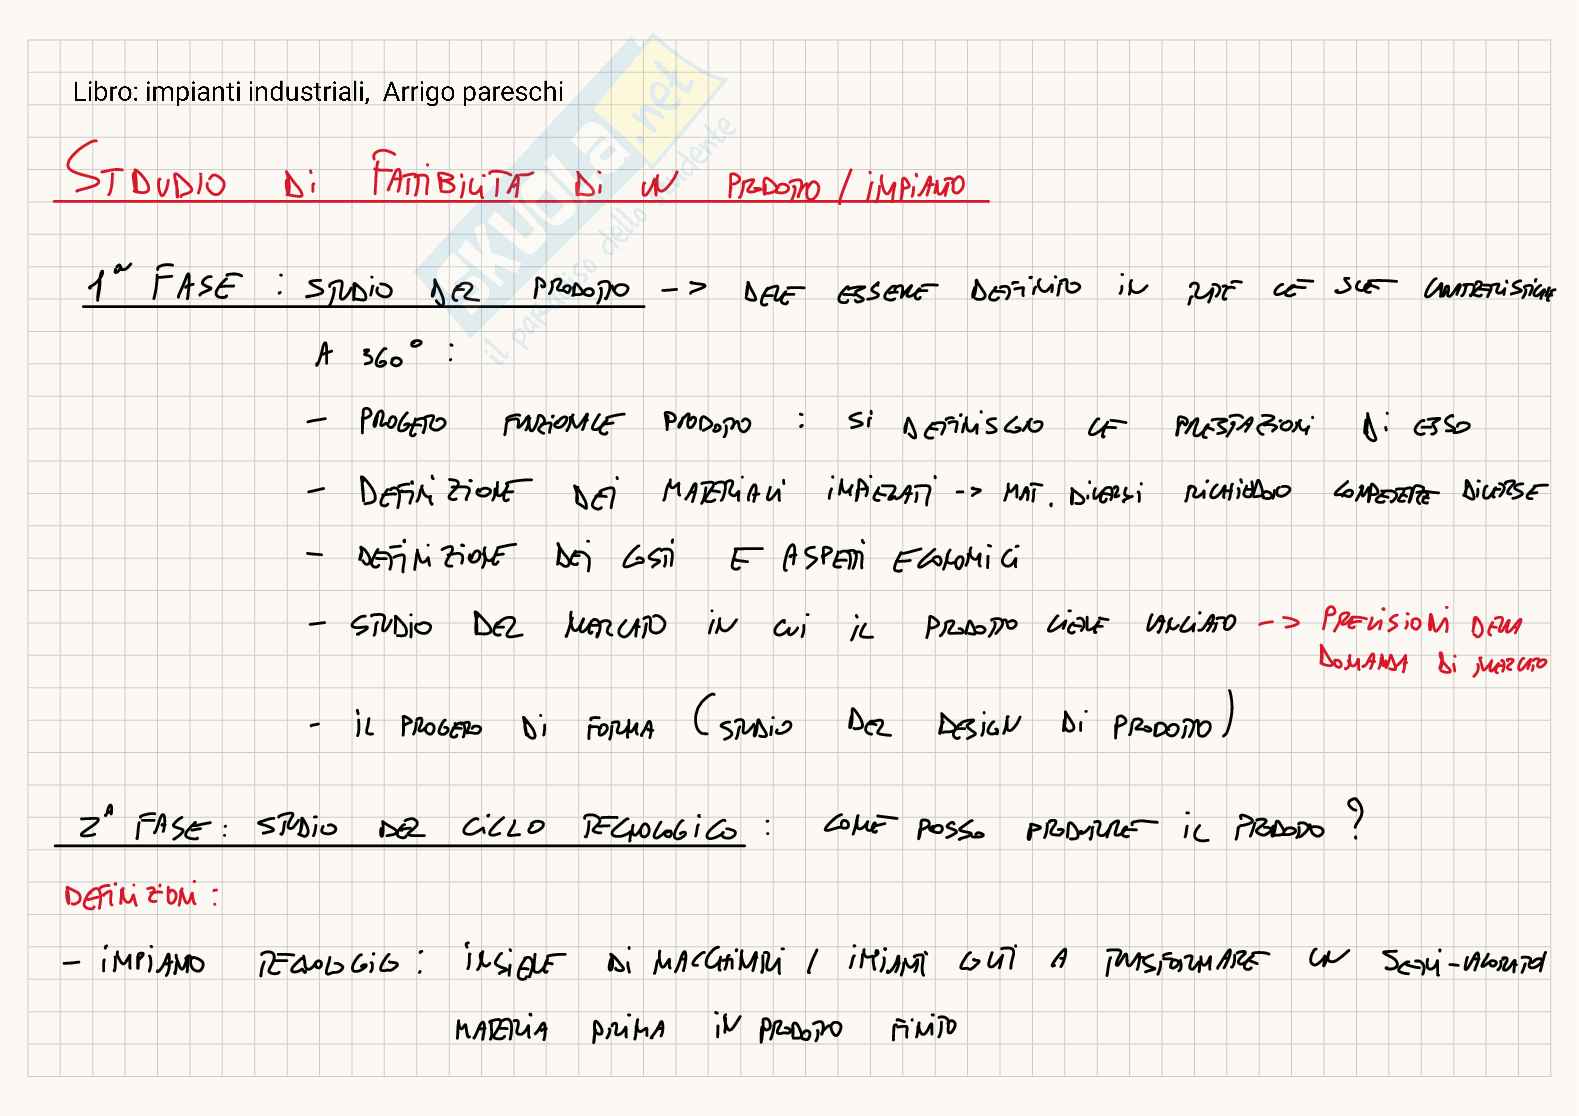 Libro: impianti industriali, Arrigo pareschi
STDUDIO Di FATTIBILITÀ Di UN PRODOTTO / IMPIANTO
1ª FASE : STUDIO DEL PRODOTTO -> DEVE ESSERE DEFINITO IN TUTTE LE SUE CARATTERISTICHE
A 360° :
- PROGETTO FUNZIONALE PRODOTTO : Si DEFINISCONO LE PRESTAZIONI Di ESSO
- DEFINIZIONE DEI MATERIALI IMPIEGATI -> MAT. DIVERSI RICHIEDONO COMPETENZE DIVERSE
- DEFINIZIONE DEI COSTI E ASPETTI ECONOMICI
- STUDIO DEL MERCATO IN CUI IL PRODOTTO VIENE LANCIATO -> PREVISIONI DELLA
DOMANDA Di MERCATO
- IL PROGETTO DI FORMA (STUDIO DEL DESIGN Di PRODOTTO)
2ᴬ FASE : STUDIO DEL CICLO TECNOLOGICO : COME POSSO PRODURRE IL PRODOTTO ?
DEFINIZIONI :
- IMPIANTO TECNOLOGICO : INSIEME DI MACCHINARI / IMPIANTI VOLTI A TRASFORMARE UN SEMI-LAVORATO/
MATERIA PRIMA IN PRODOTTO FINITO
SKUOLA.net
il paradiso dello studente